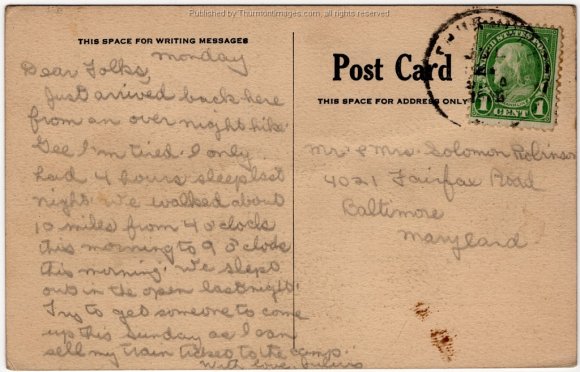 Published by Thurmontimages.com, all rights reserved
THIS SPACE FOR WRITING MESSAGES
Monday
Dear Folks,
Just arrived back here
from an over night hike.
Gee I'm tired. I only
had 4 hours sleep last
night. We walked about
10 miles from 4 o'clock
this morning to 9 o'clock
this morning. We slept
out in the open last night.
Try to get someone to come
up this Sunday as I can
sell my train ticket to the camp.
With love,
Post Card
THIS SPACE FOR ADDRESS ONLY
UNITED STATES POSTAGE
1 CENT 1
Mr. & Mrs. Solomon Robinson
4021 Fairfax Road
Baltimore
Maryland